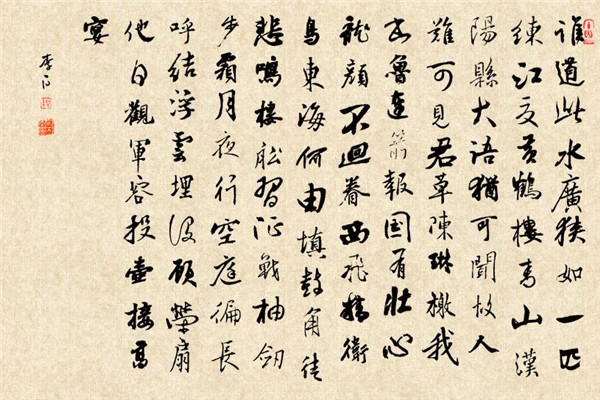 誰道此水廣狹如一匹
練江夏黃鶴樓青山漢
陽縣大語猶可聞故人
難可見君草陳琳檄我
書魯連箭報国有壯心
龍顏不迴眷西飛精衛
鳥東海何由填鼓角徒
悲鳴樓船習征戰抽劍
步霜月夜行空庭徧長
呼結浮雲埋沒顧榮扇
他日觀軍容投壺接高
宴
李白